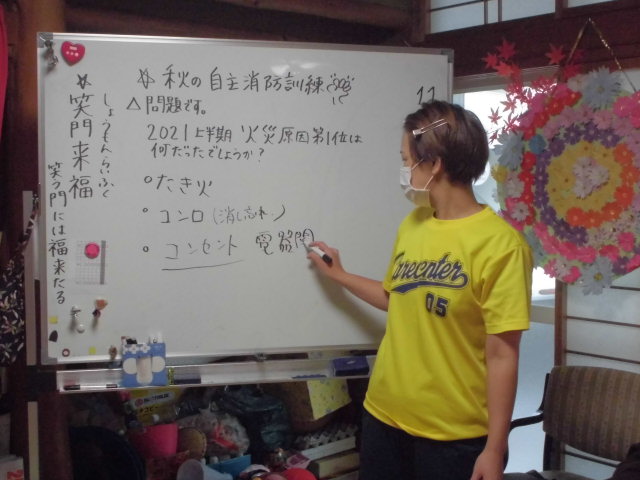 ☆ 秋の自主消防訓練
11
△問題です。
2021上半期 火災原因第1位は
何だったでしょうか?
○たき火
○コンロ(消し忘れ…)
○コンセント 電器関
☆笑門来福
しょうもんらいふく
笑う門には福来たる
Carecater
05